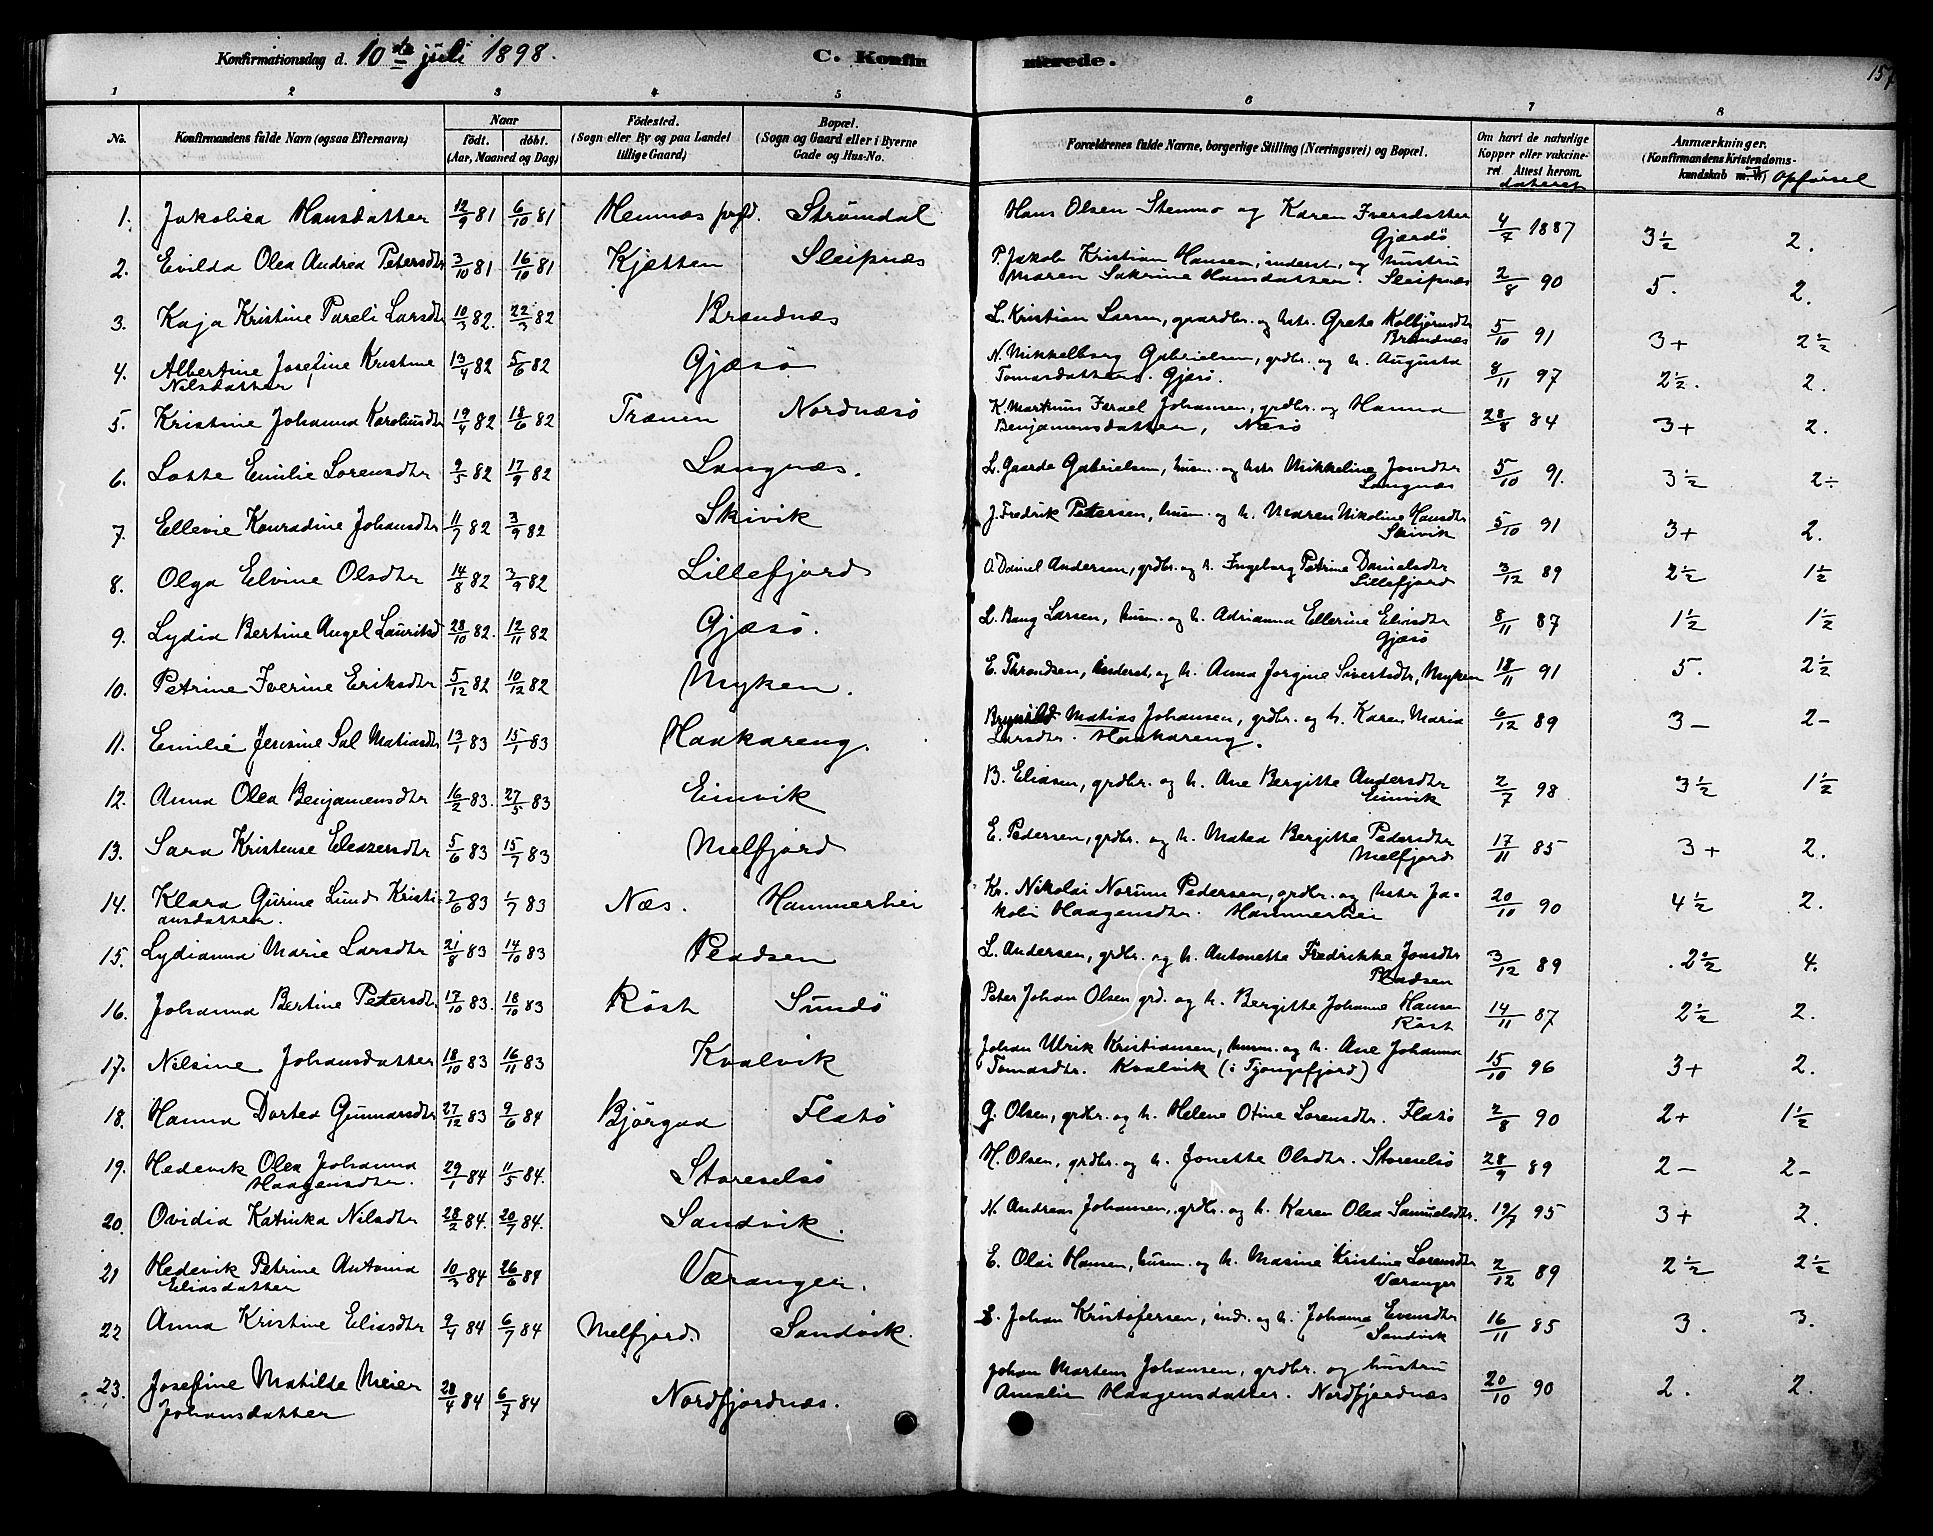 Konfirmationsdag d. 10de juli 1898. C. Konfirmerede. 157
1 2 3 4 5 6 7 8
No. Konfirmandens fulde Navn (ogsaa Efternavn) Naar født. døbt. (Aar, Maaned og Dag) Fødested. (Sogn eller By og paa Landet tillige Gaard) Bopæl. (Sogn og Gaard eller i Byerne Gade og Hus-No. Forældrenes fulde Navne, borgerlige Stilling (Næringsvei) og Bopæl. Om havt de naturlige Kopper eller vakcineret Attest herom dateret Anmærkninger. (Konfirmandens Kristendomskundskab m. V) Opførsel
1. Jakobea Hansdatter 12/9 81 6/10 81 Hemnæs prgld. Strømdal Hans Olsen Stenmo og Karen Iversdatter
Gjærdø 4/7 1887 3 1/2 2.
2. Evilda Olea Andrea Petersdtr 3/10 81 16/10 81 Kjøtten Sleipnæs P. Jakob Kristian Hansen, inderst, og hustru
Maren Sakrine Hansdatter. Sleipnæs 2/8 90 5. 2.
3. Kaja Kristine Pareli Larsdtr 10/3 82. 22/3 82 Brændnæs L. Kristian Larsen, gaardbr. og hstr. Grete Kolbjørnsdtr
Brændnæs 5/10 91 3+ 2 1/2
4. Albertine Josefine Kristine
Nilsdatter 13/4 82 5/6 82 Gjæsø N. Mikkelborg Gabrielsen, grdbr. og h. Augusta
Tomasdatter. Gjæsø. 8/11 97 2 1/2. 2.
5. Kristine Johanna Karoliusdtr 19/4 82 18/6 82 Trænen Nordnæsø K. Markus Israel Johansen, grdbr. og Hanna
Benjamensdatter, Næsø 28/8 84 3+ 2.
6. Lotte Emilie Lorensdtr 9/5 82 17/9 82 Langnæs. L. Gaarde Gabrielsen, husm. og hstr. Mikkeline Jonsdtr
Langnæs 5/10 91. 3 1/2 2÷
7. Ellevie Konradine Johansdtr 11/7 82 3/9 82 Skivik J. Fredrik Petersen, husm. og h. Maren Nikoline Hansdtr
Skivik 5/10 91 3+ 2.
8. Olga Elvine Olsdtr 14/8 82 3/9 82 Lillefjord O. Daniel Andersen, grdbr. og h. Ingeborg Petrine Danielsdtr
Lillefjord 3/12 89 2 1/2 1 1/2
9. Lydia Bertine Angel Lauritsd 28/10 82. 12/11 82 Gjæsø. L. Bang Larsen, husm. og h. Adrianna Ellerine Eliasdtr
Gjæsø 8/11 87 1 1/2 1 1/2
10. Petrine Iverine Eriksdtr 5/12 82 10/12 82 Myken. E. Throndsen, inderst, og h. Anna Jorgine Sivertsdtr, Myken 18/11 91 5. 2 1/2
11. Emilie Jensine Sal Matiasdtr 13/1 83 15/1 83 Haakareng. Matias Johansen, grdbr. og h. Karen Maria
Larsdtr. Haakareng. 6/12 89 3- 2-
12. Anna Olea Benjamensdtr 16/2 83. 27/5 83 Eimvik B. Eliasen, grdbr. og h. Ane Bergitte Andersdtr
Eimvik 2/7 98 3 1/2 1 1/2
13. Sara Kristense Eleasersdtr 5/6 83 15/7 83 Melfjord E. Pedersen, grdbr. og h. Matea Bergitte Pedersdtr
Melfjord 17/11 85 3+ 2.
14. Klara Gurine Lund Kristi-
ansdatter. 2/6 83 1/7 83 Næs. Hammerhei Kr. Nikolai Norum Pedersen, grdbr. og hstr. Ja-
kobi Haagensdtr. Hammerhei 20/10 90 4 1/2 2.
15. Lydianna Marie Larsdtr 21/8 83 14/10 83 Pladsen L. Andersen, grdbr. og h. Antonette Fredrikke Jonsdtr
Pladsen 3/12 89 2 1/2 4.
16. Johanna Bertine Petersdtr 17/10 83. 18/10 83 Røst Sundø Peter Johan Olsen grd. og h. Bergitte Johanne Hansen
Røst 14/11 87 2 1/2 2.
17. Nilsine Johansdatter 18/10 83 16/11 83 Kvalvik Johan Ulrik Kristiansen, husm. og h. Ane Johanna
Tomasdtr. Kvalvik (i Tjongsfjord) 15/10 96 3+ 2.
18. Hanna Dortea Gunnarsdtr 27/12 83 9/6 84 Bjørgaa Flatø G. Olsen, grdbr. og h. Helene Otine Lorensdtr. Flatø 2/8 90 2+ 1 1/2
19. Hedevik Olea Johanna
Haagensdtr. 29/1 84 11/5 84. Storeselsø H. Olsen, grdbr. og h. Jonette Olsdtr. Storeselsø 28/9 89 2- 2-
20. Ovidia Katinka Nilsdtr 28/2 84. 20/7 84. Sandvik. N. Andreas Johansen, grdbr. og h. Karen Olea Samuelsdtr. 19/7 95 3+ 2.
21 Hedevik Petrine Antonia
Eliasdatter 10/3 84 26/6 84 Væranger. E. Olai Hansen, husm. og h. Masine Kristine Lorensdtr
Væranger 2/12 89 2 1/2 2 1/2
22 Anna Kristine Eliasdtr 9/4 84 6/7 84 Melfjord. Sandvik. E. Johan Kristofersen, ind. og h. Johanna Evensdtr
Sandvik 16/11 85 3. 3.
23. Josefine Matilde Meier
Johansdatter 28/4 84 6/7 84 Nordfjordnæs. Johan Martens Johansen, grdbr. og hustru
Amalie Haagensdatter. Nordfjordnæs 20/10 90 2. 2.